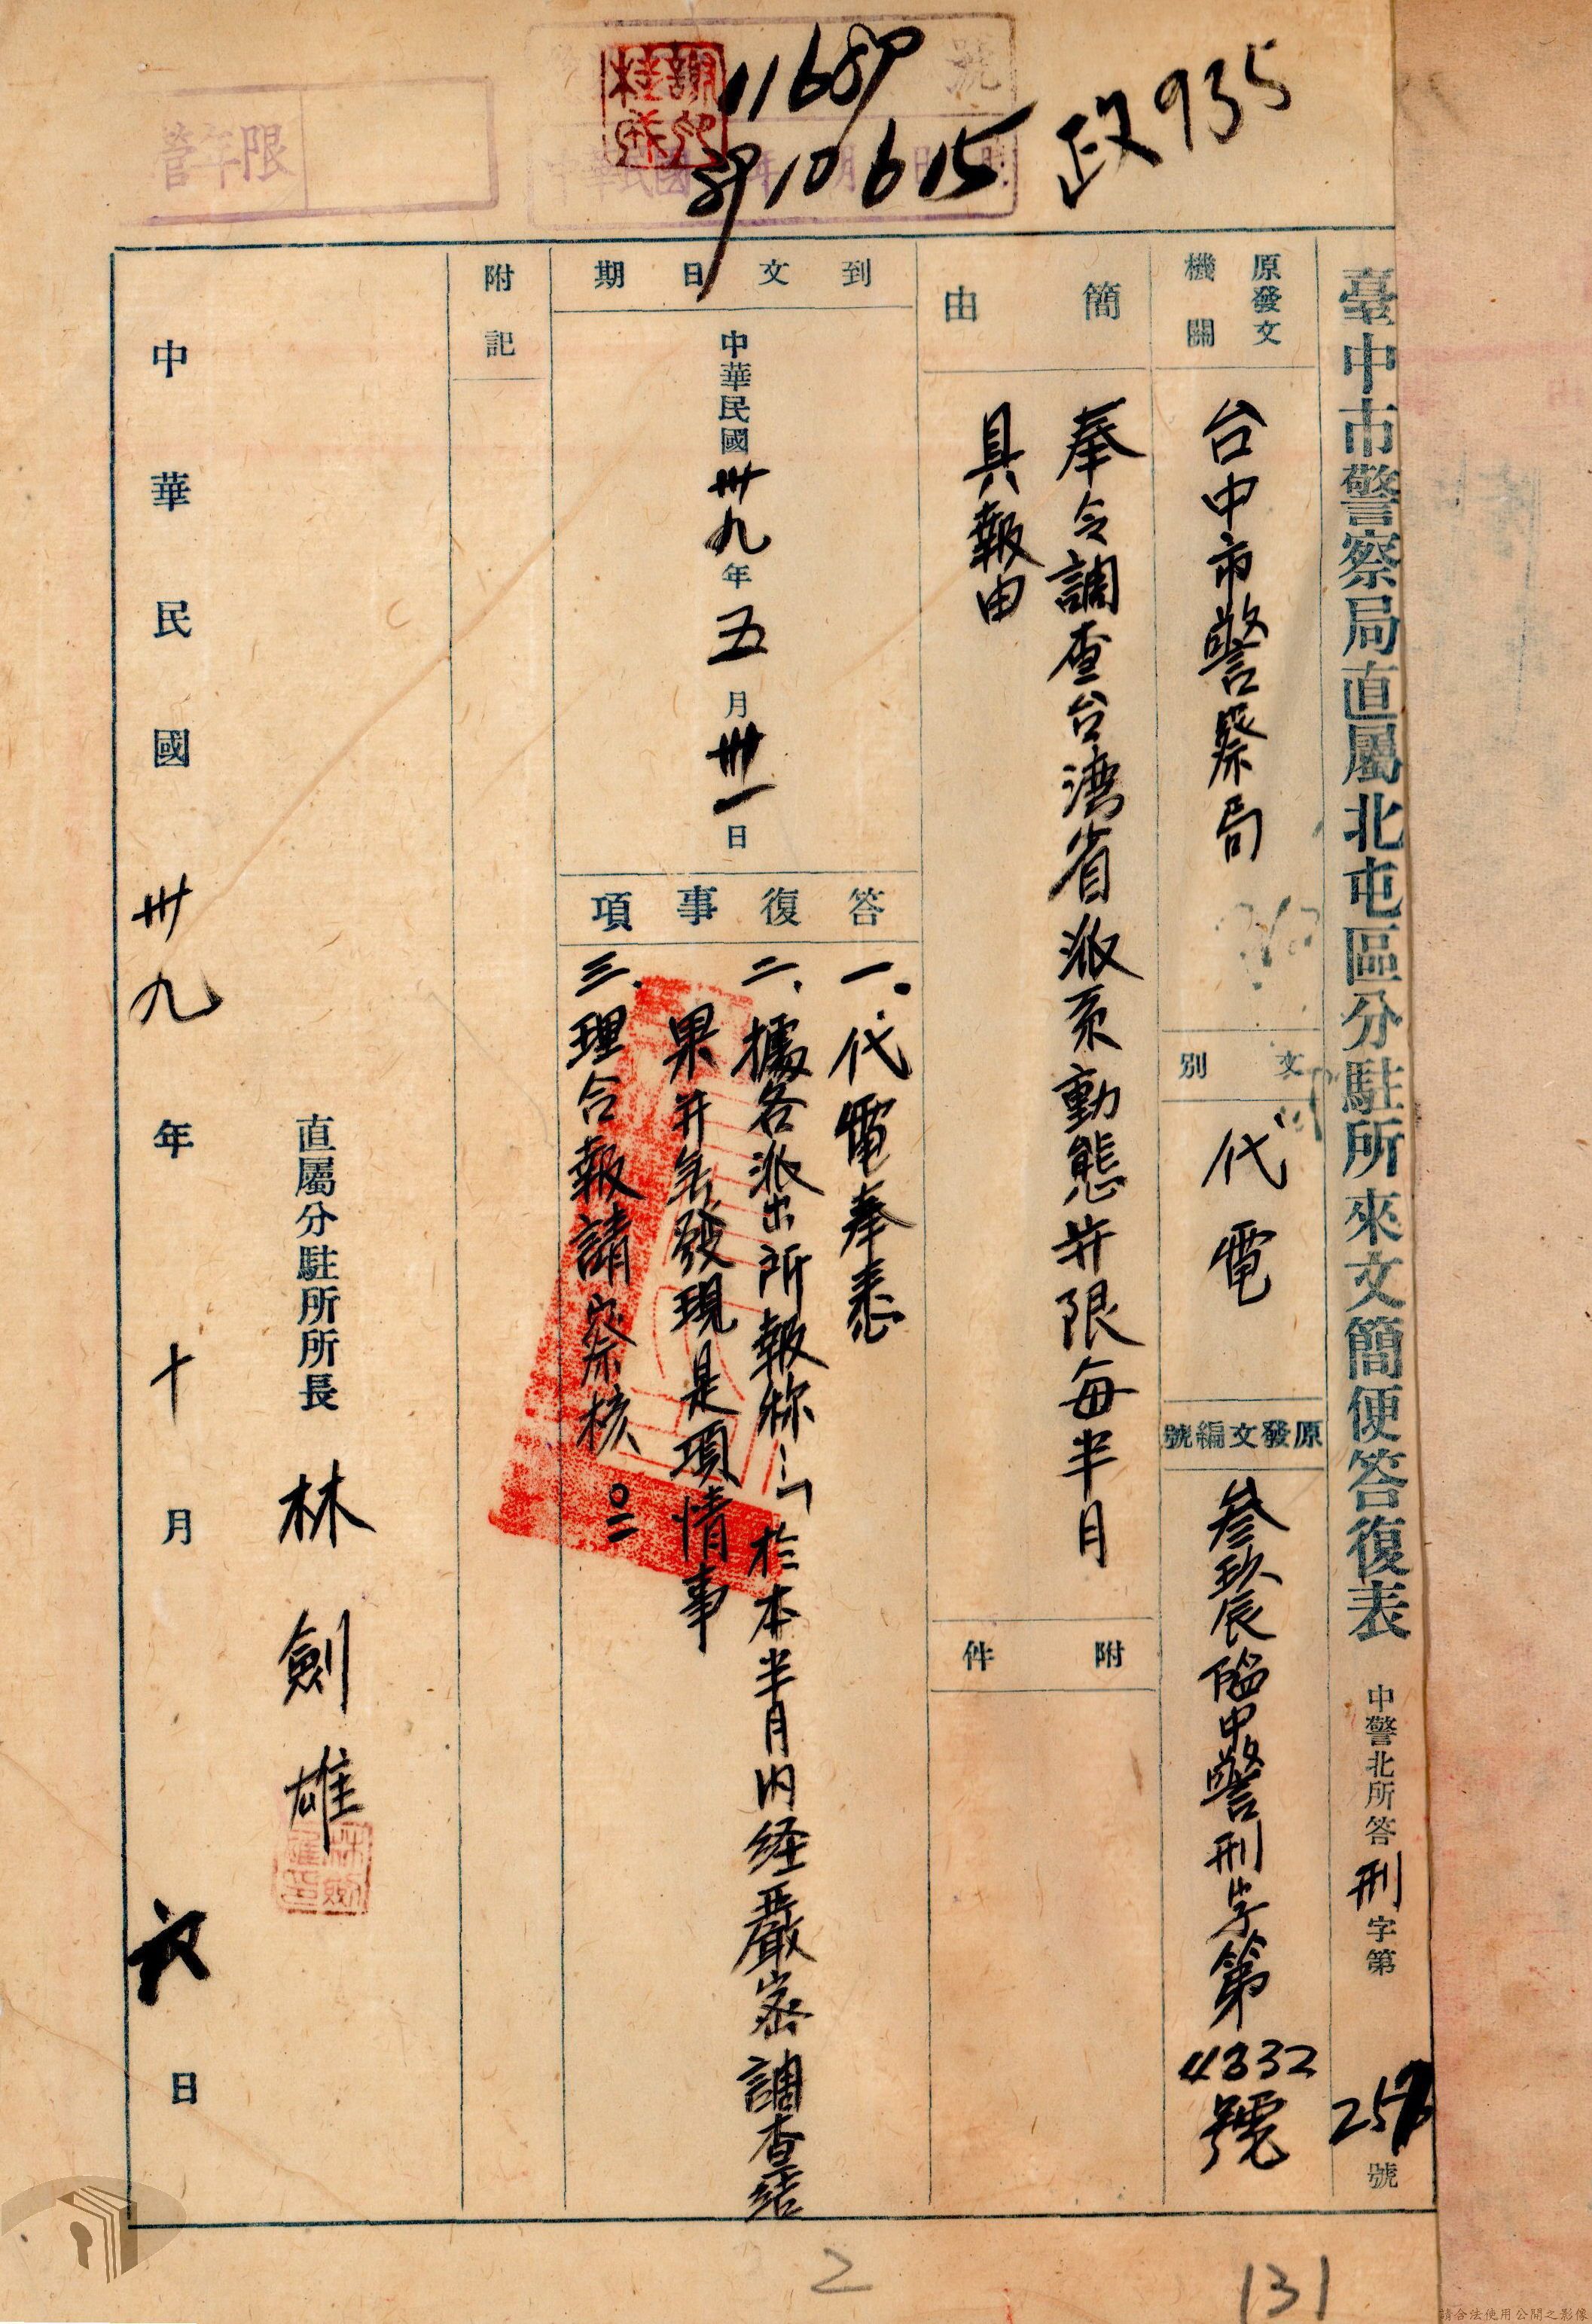 11689
39 10 6 15
政935
謝桂成印
號
中華民國 年 月 日
年限
臺中市警察局直屬北屯區分駐所來文簡便答復表 中警北所答刑字第257號
原發文機關
台中市警察局
文別
代電
原發文編號
叁玖辰陷中警刑字第4332號
簡由
奉令調查台湾省派系動態并限每半月
具報由
附件
到文日期
中華民國卅九年五月卅一日
答復事項
一.代電奉悉
二、據各派出所報称:「於本半月内経嚴密調查结
果并無發現是項情事
三.理合報請察核
附記
直屬分駐所所長 林劍雄
林劍雄印
中華民國卅九年十月六日
2
131
請合法使用公開之影像